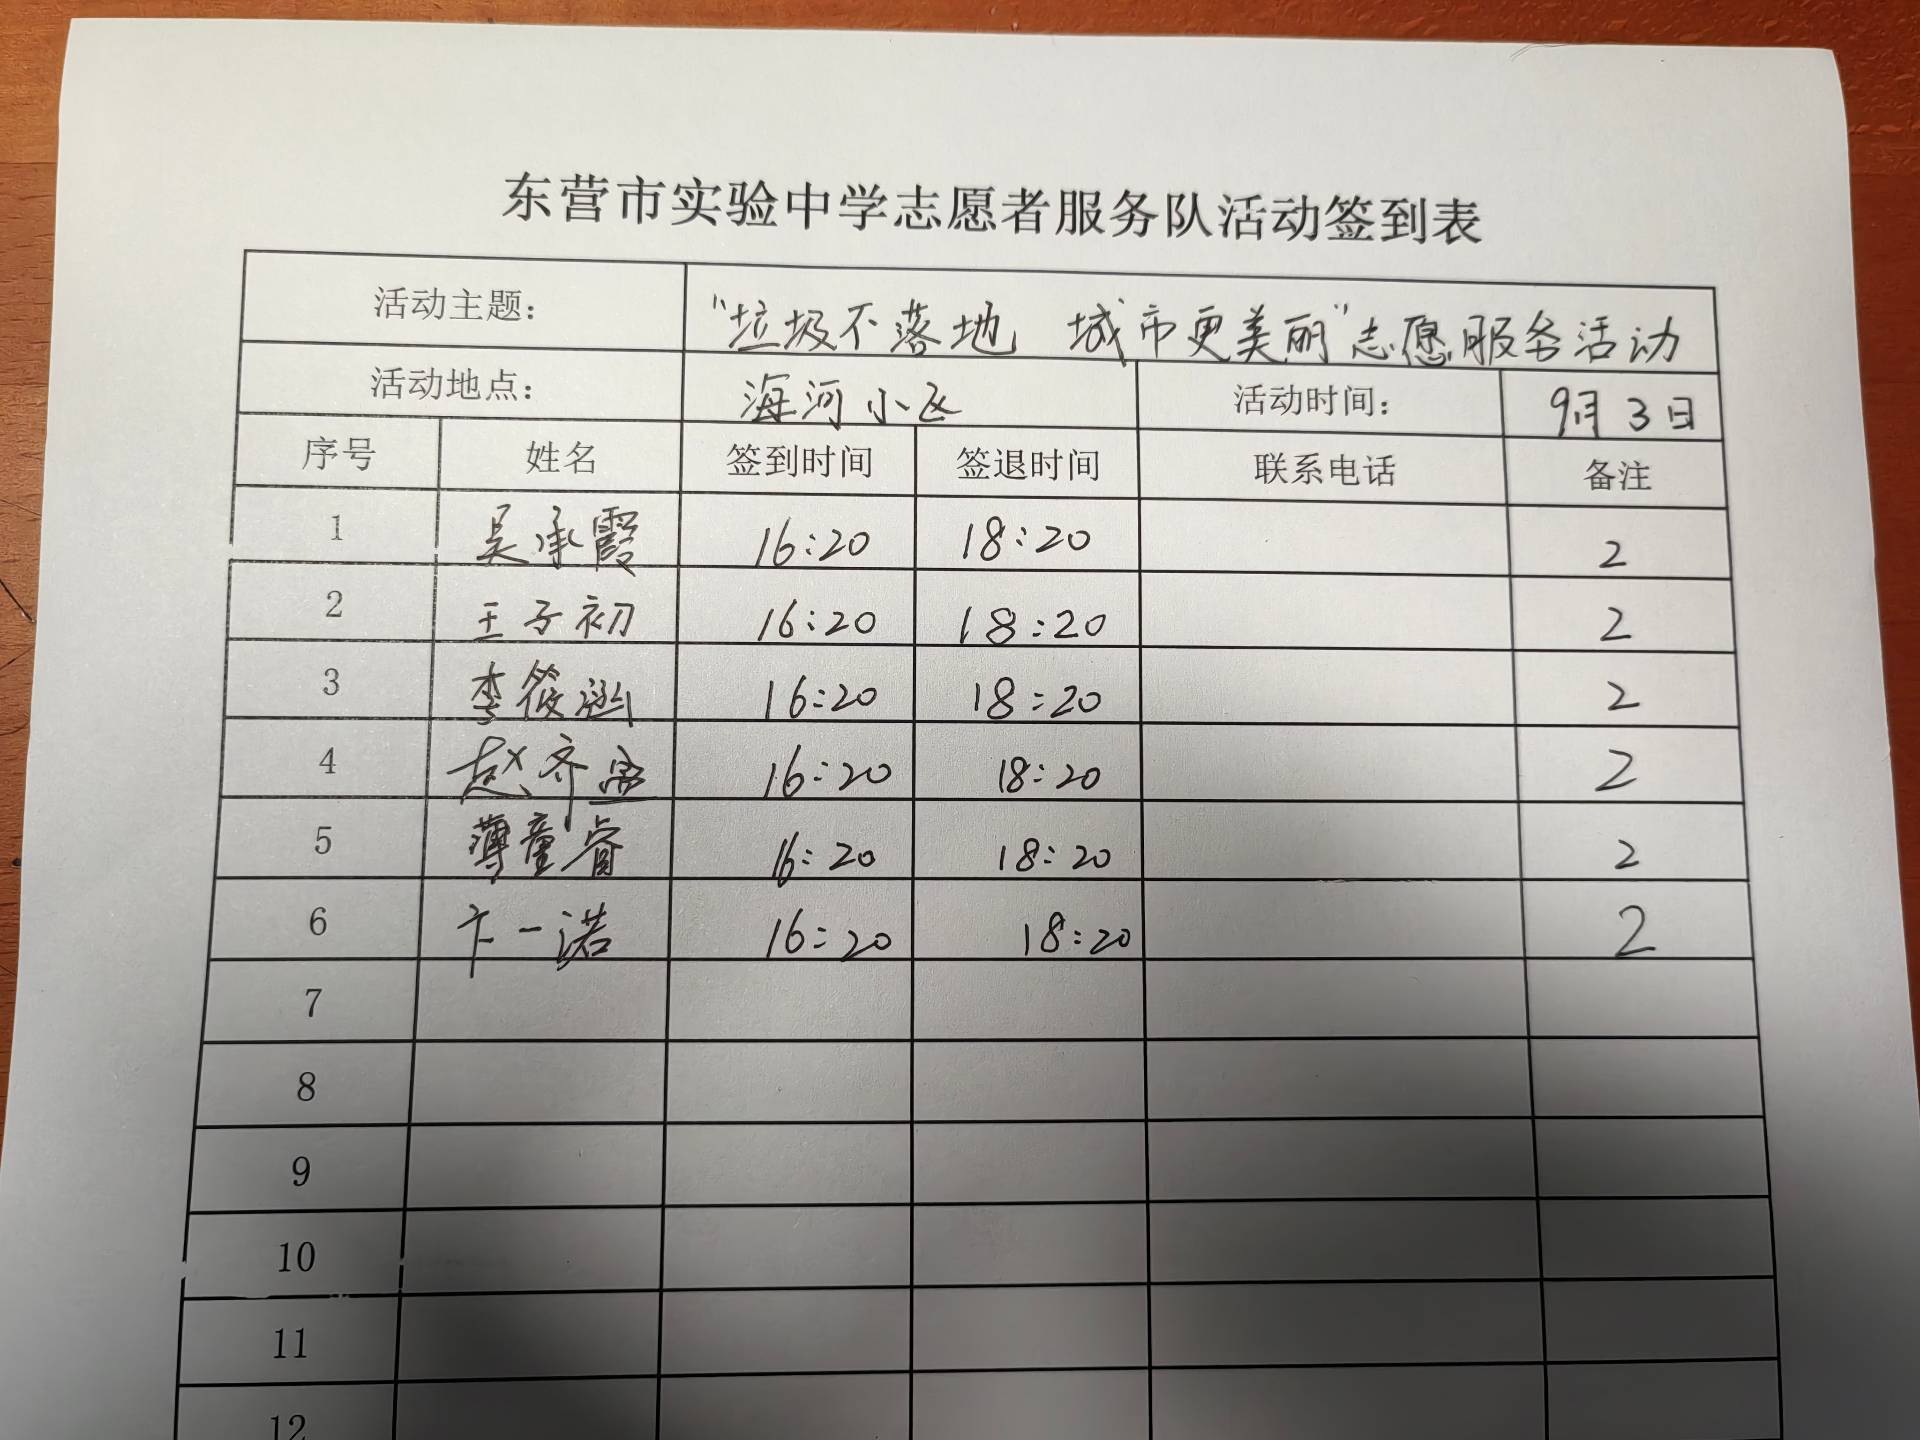 东营市实验中学志愿者服务队活动签到表
活动主题： “垃圾不落地 城市更美丽”志愿服务活动
活动地点： 海河小区 活动时间： 9月3日
序号 姓名 签到时间 签退时间 联系电话 备注
1 吴承霞 16:20 18:20 2
2 王子初 16:20 18:20 2
3 李筱涵 16:20 18:20 2
4 赵齐 16:20 18:20 2
5 薄童睿 16:20 18:20 2
6 卞一诺 16:20 18:20 2
7
8
9
10
11
12